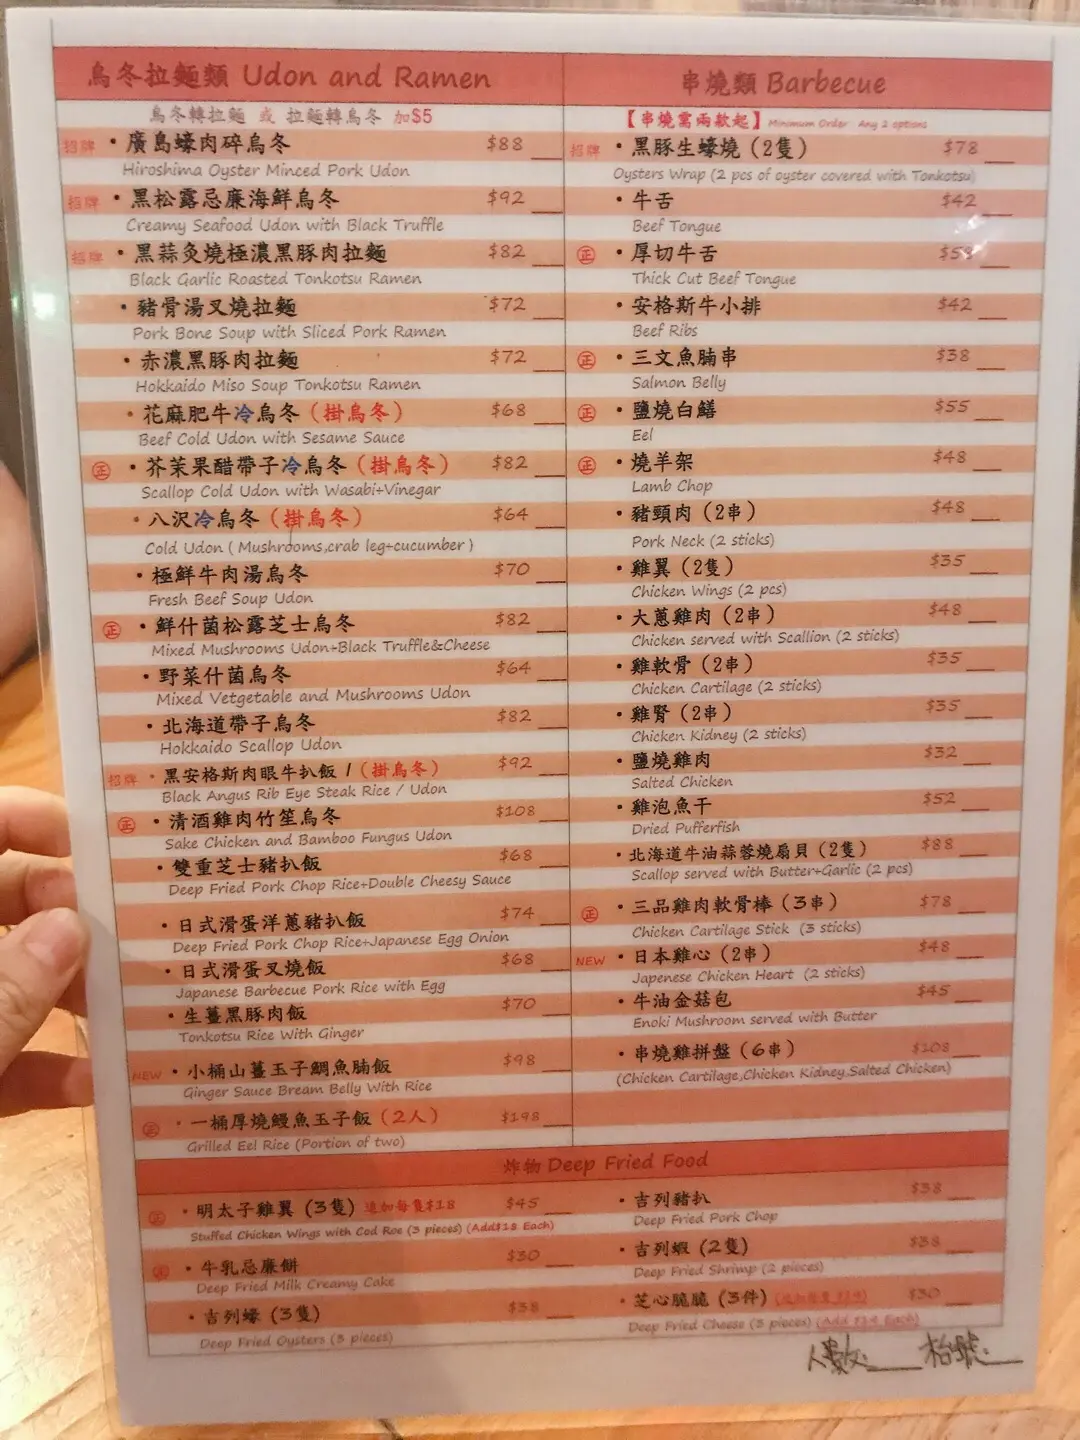 烏冬拉麵類 Udon and Ramen
烏冬轉拉麵 或 拉麵轉烏冬 加$5
招牌 • 廣島蠔肉碎烏冬 $88
Hiroshima Oyster Minced Pork Udon
招牌 • 黑松露忌廉海鮮烏冬 $92
Creamy Seafood Udon with Black Truffle
招牌 • 黑蒜灸燒極濃黑豚肉拉麵 $82
Black Garlic Roasted Tonkotsu Ramen
• 豬骨湯叉燒拉麵 $72
Pork Bone Soup with Sliced Pork Ramen
• 赤濃黑豚肉拉麵 $72
Hokkaido Miso Soup Tonkotsu Ramen
• 花麻肥牛冷烏冬 (掛烏冬) $68
Beef Cold Udon with Sesame Sauce
正 • 芥茉果醋帶子冷烏冬 (掛烏冬) $82
Scallop Cold Udon with Wasabi+Vinegar
• 八沢冷烏冬 (掛烏冬) $64
Cold Udon ( Mushrooms,crab leg+cucumber )
• 極鮮牛肉湯烏冬 $70
Fresh Beef Soup Udon
正 • 鮮什菌松露芝士烏冬 $82
Mixed Mushrooms Udon+Black Truffle&Cheese
• 野菜什菌烏冬 $64
Mixed Vetgetable and Mushrooms Udon
• 北海道帶子烏冬 $82
Hokkaido Scallop Udon
招牌 • 黑安格斯肉眼牛扒飯 / (掛烏冬) $92
Black Angus Rib Eye Steak Rice / Udon
正 • 清酒雞肉竹笙烏冬 $108
Sake Chicken and Bamboo Fungus Udon
• 雙重芝士豬扒飯 $68
Deep Fried Pork Chop Rice+Double Cheesy Sauce
• 日式滑蛋洋蔥豬扒飯 $74
Deep Fried Pork Chop Rice+Japanese Egg Onion
• 日式滑蛋叉燒飯 $68
Japanese Barbecue Pork Rice with Egg
• 生薑黑豚肉飯 $70
Tonkotsu Rice With Ginger
NEW • 小桶山薑玉子鯛魚腩飯 $98
Ginger Sauce Bream Belly With Rice
正 • 一桶厚燒鰻魚玉子飯 (2人) $198
Grilled Eel Rice (Portion of two)
串燒類 Barbecue
【串燒需兩款起】 Minimum Order Any 2 options
招牌 • 黑豚生蠔燒 (2隻) $78
Oysters Wrap (2 pcs of oyster covered with Tonkotsu)
• 牛舌 $42
Beef Tongue
正 • 厚切牛舌
Thick Cut Beef Tongue
• 安格斯牛小排 $42
Beef Ribs
正 • 三文魚腩串 $38
Salmon Belly
正 • 鹽燒白鱔 $55
Eel
正 • 燒羊架 $48
Lamb Chop
• 豬頸肉 (2串) $48
Pork Neck (2 sticks)
• 雞翼 (2隻) $35
Chicken Wings (2 pcs)
• 大蔥雞肉 (2串) $48
Chicken served with Scallion (2 sticks)
• 雞軟骨 (2串) $35
Chicken Cartilage (2 sticks)
• 雞腎 (2串) $35
Chicken Kidney (2 sticks)
• 鹽燒雞肉 $32
Salted Chicken
• 雞泡魚干 $52
Dried Pufferfish
• 北海道牛油蒜蓉燒扇貝 (2隻) $88
Scallop served with Butter+Garlic (2 pcs)
正 • 三品雞肉軟骨棒 (3串) $78
Chicken Cartilage Stick (3 sticks)
NEW • 日本雞心 (2串) $48
Japenese Chicken Heart (2 sticks)
• 牛油金菇包 $45
Enoki Mushroom served with Butter
• 串燒雞拼盤 (6串) $108
(Chicken Cartilage,Chicken Kidney,Salted Chicken)
炸物 Deep Fried Food
正 • 明太子雞翼 (3隻) 追加每隻$18 $45
Stuffed Chicken Wings with Cod Roe (3 pieces) (Add$18 Each)
正 • 牛乳忌廉餅 $30
Deep Fried Milk Creamy Cake
• 吉列蠔 (3隻) $38
Deep Fried Oysters (3 pieces)
• 吉列豬扒 $38
Deep Fried Pork Chop
• 吉列蝦 (2隻) $38
Deep Fried Shrimp (2 pieces)
• 芝心脆脆 (3件) $30
Deep Fried Cheese (3 pieces) (Add $14 Each)
人數: 枱號: